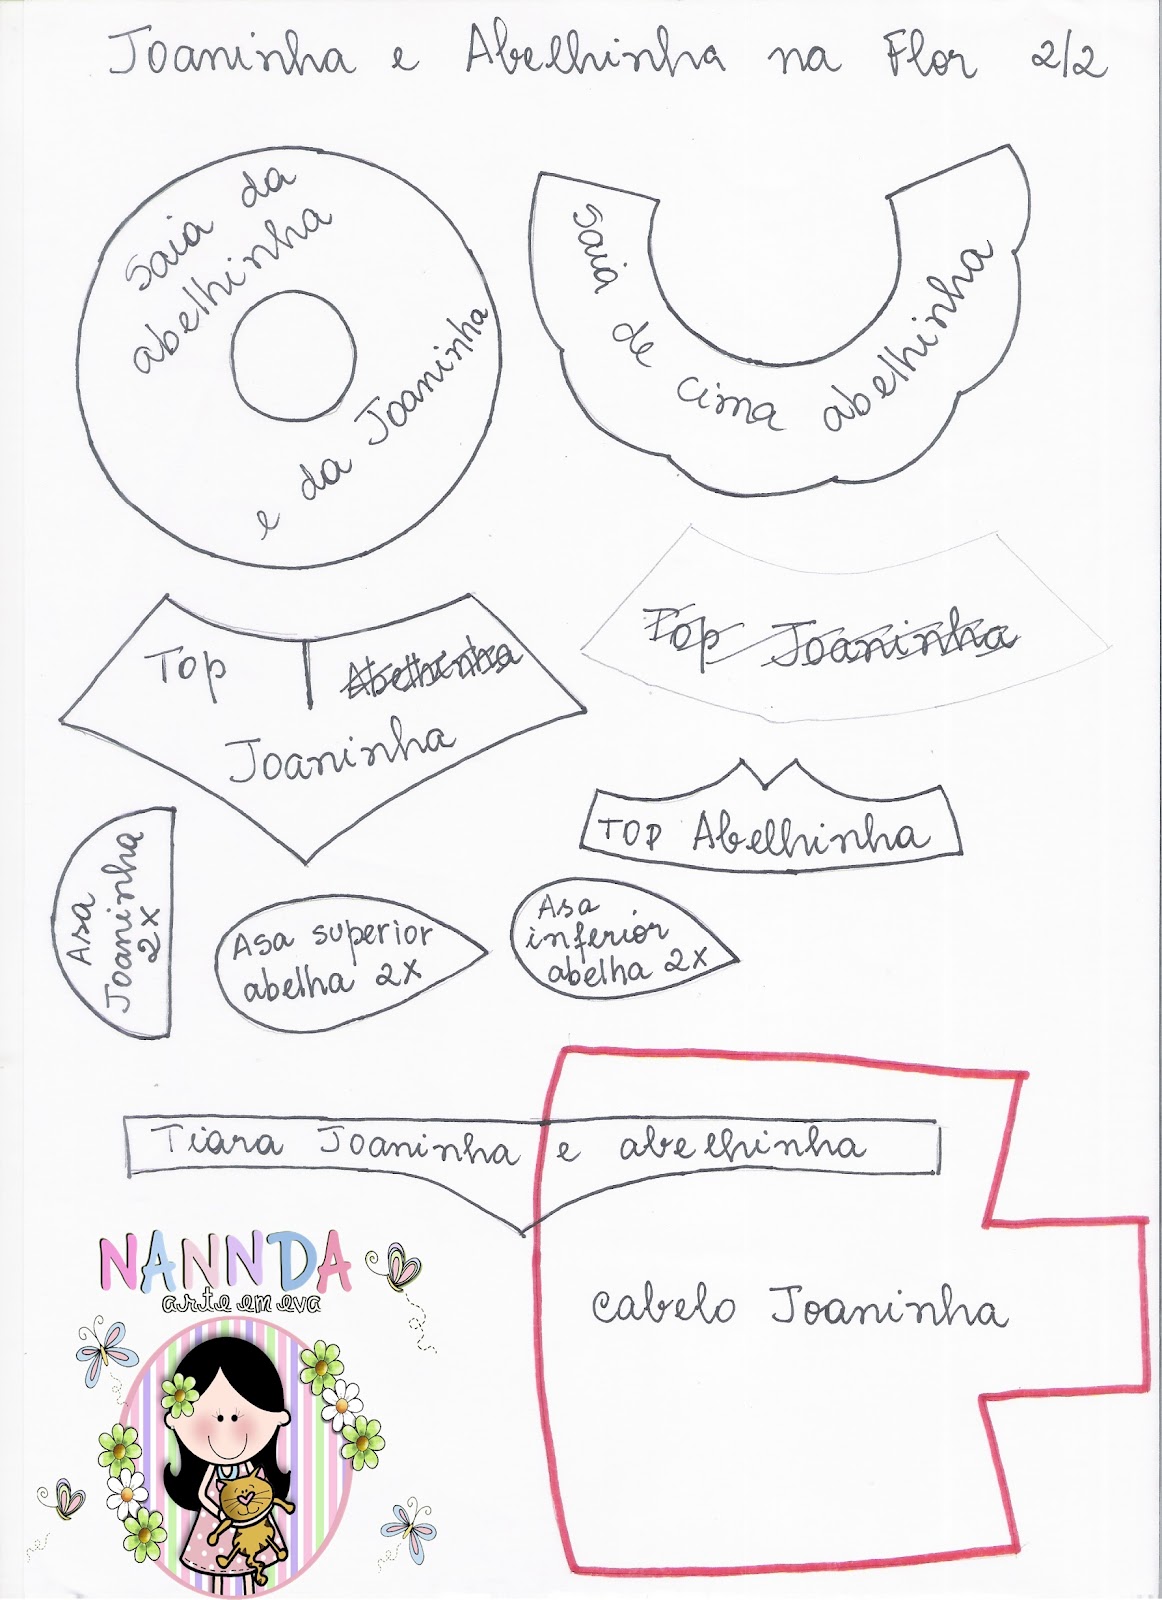 Joaninha e Abelhinha na Flor 2/2
Saia da
abelhinha
e da Joaninha
Saia de cima abelhinha
Top Abelhinha
Joaninha
Top Joaninha
TOP Abelhinha
Asa
Joaninha
2x
Asa superior
abelha 2x
Asa
inferior
abelha 2x
Tiara Joaninha e abelhinha
NANNDA
arte em eva
cabelo Joaninha